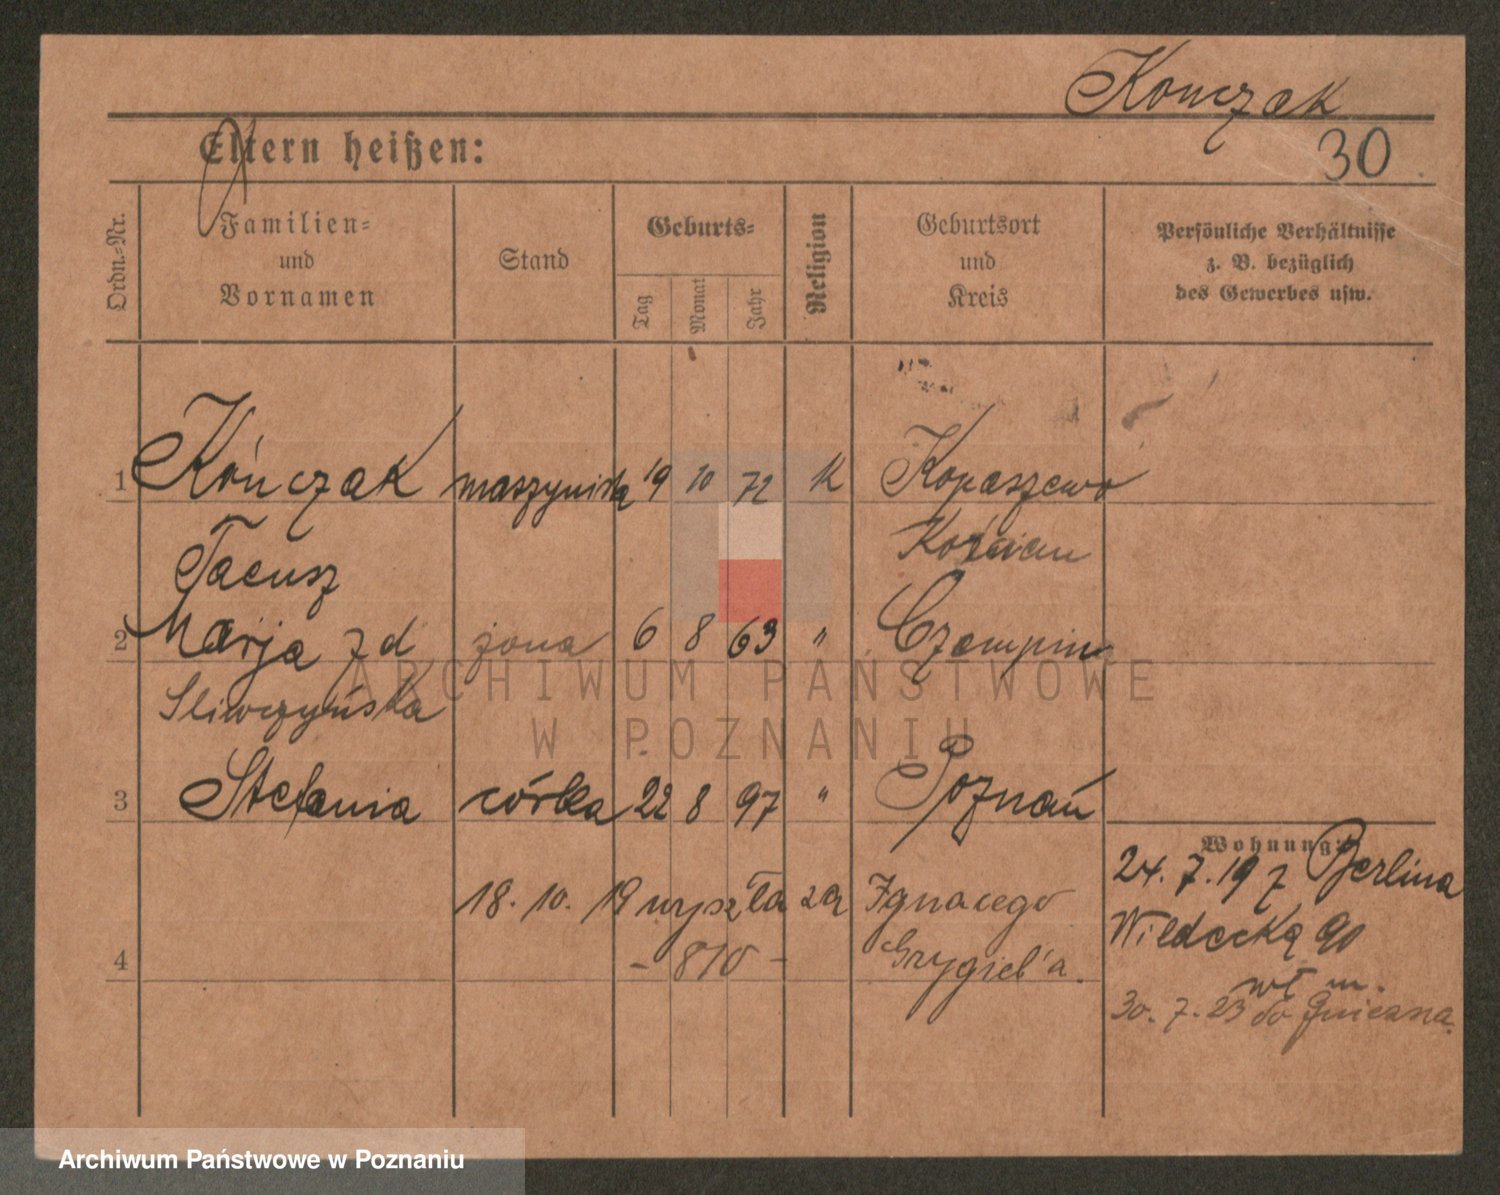 Konczak
Eltern heißen:
30
Ordn.-Nr.
Familien-
und
Vornamen
Stand
Geburts-
Tag
Monat
Jahr
Religion
Geburtsort
und
Kreis
Persönliche Verhältnisse
z. B. bezüglich
des Gewerbes usw.
1 Kończak maszynista 19 10 72 K Kopaszewo
Tacusz Kościan
2 Marja z d. żona 6 8 63 " Czempin
Sliwczyńska
3 Stefania córka 22 8 97 " Poznań
Wohnung:
24. 7. 19 z Berlina
18. 10. 19 wyszła za Ignacego
Wildecką 90
4 - 870 - Grygiel'a.
wł m.
30. 7. 23 do Gniezna.
ARCHIWUM PAŃSTWOWE
W POZNANIU
Archiwum Państwowe w Poznaniu